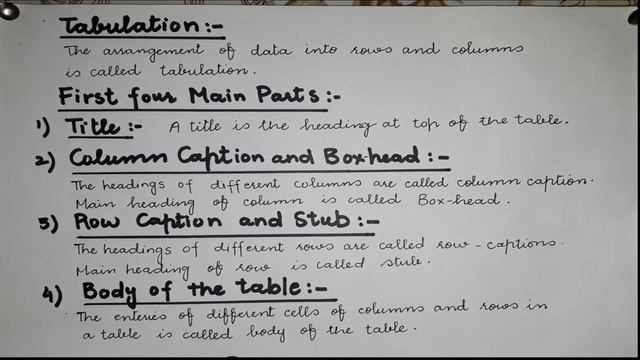 Tabulation:-
The arrangement of data into rows and columns
is called tabulation.
First four Main Parts:-
1) Title:- A title is the heading at top of the table.
2) Column Caption and Box-head:-
The headings of different columns are called column caption.
Main heading of column is called Box-head.
3) Row Caption and Stub:-
The headings of different rows are called row-captions.
Main heading of row is called stub.
4) Body of the table:-
The enteries of different cells of columns and rows in
a table is called body of the table.